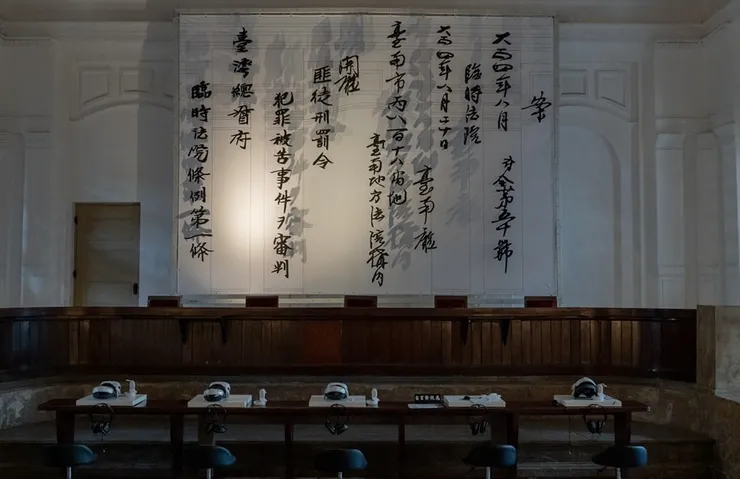 案
大正四年八月 令第五十號
臨時法院
大正四年八月二十日 臺南廳
臺南市内八百十八番地
臺南地方法院構内
開廳
匪徒刑罰令
犯罪被告事件ヲ審判
臺灣總督府
臨時法院條例第一條